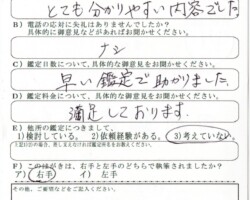 とても分かりやすい内容でした
B）電話の応対に失礼はありませんでしたか？
具体的に御意見などがあればお聞かせください。
ナシ
C）鑑定日数について、具体的な御意見をお聞かせください。
早い鑑定で助かりました。
D）鑑定料金について、具体的な御意見をお聞かせください。
満足しております。
E）他所の鑑定につきまして。
1)検討している。 2)依頼経験がある。 3)考えていない。
F）このはがきは、右手と左手のどちらで執筆されましたか？
ア）右手 イ）左手
その他、ご要望などをご記入ください。